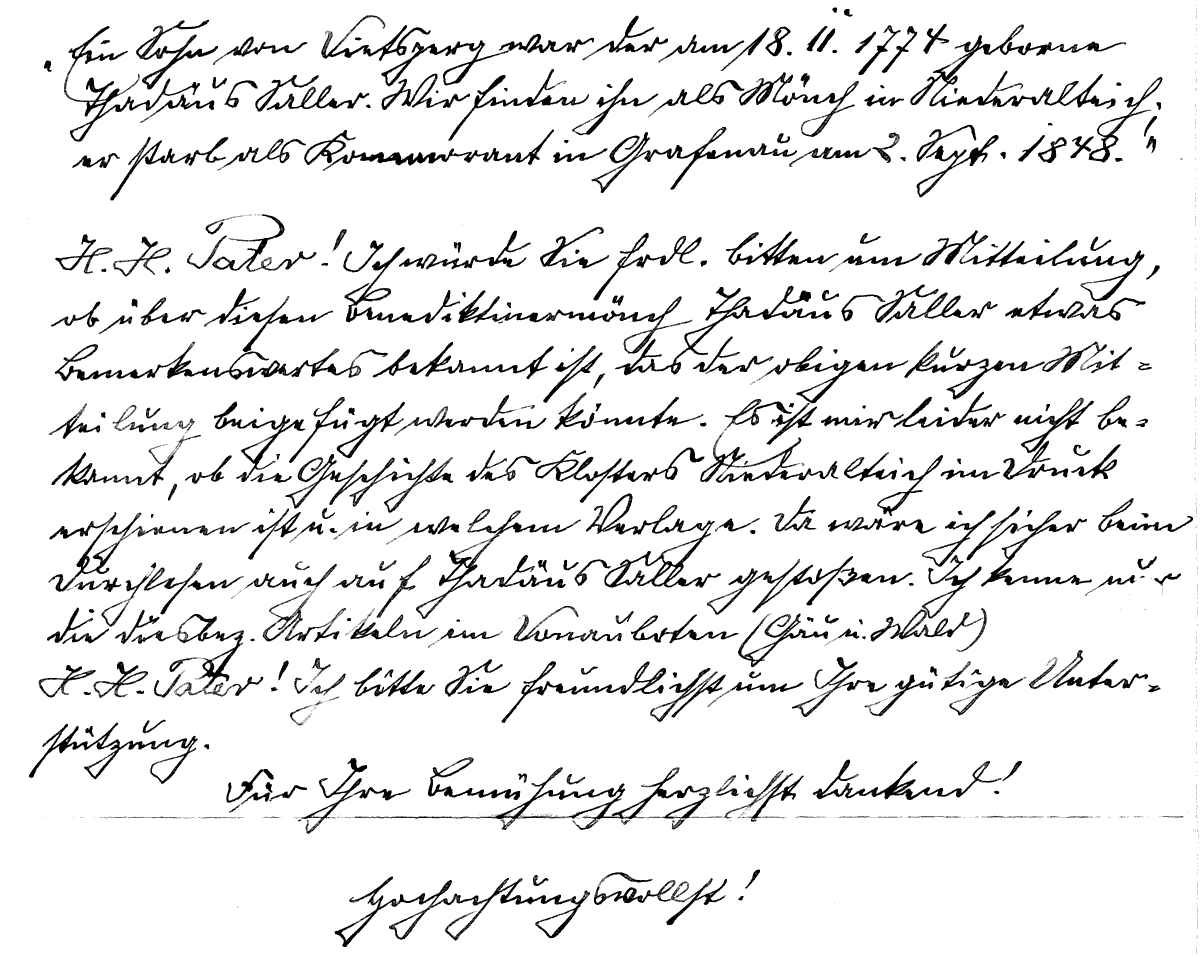 „Ein Sohn von Dietsperg war der am 18. II. 1774 geborne
Thadäus Saller. Wir finden ihn als Mönch in Niederalteich;
er starb als Kommorant in Grafenau am 2. Sept. 1848."
H. H. Pater! Ich würde Sie frdl. bitten um Mitteilung,
ob über diesen Benediktinermönch Thadäus Saller etwas
Bemerkenswertes bekannt ist, das der obigen kurzen Mit-
teilung beigefügt werden könnte. Es ist mir leider nicht be-
kannt, ob die Geschichte des Klosters Niederalteich im Druck
erschienen ist u. in welchem Verlage. Da wäre ich sicher beim
Durchlesen auch auf Thadäus Saller gestoßen. Ich kenne nur
die diesbez. Artikeln im Donauboten (Gäu u. Wald)
H. H. Pater! Ich bitte Sie freundlichst um Ihre gütige Unter-
stützung.
Für Ihre Bemühung herzlichst dankend!
Hochachtungsvollst!